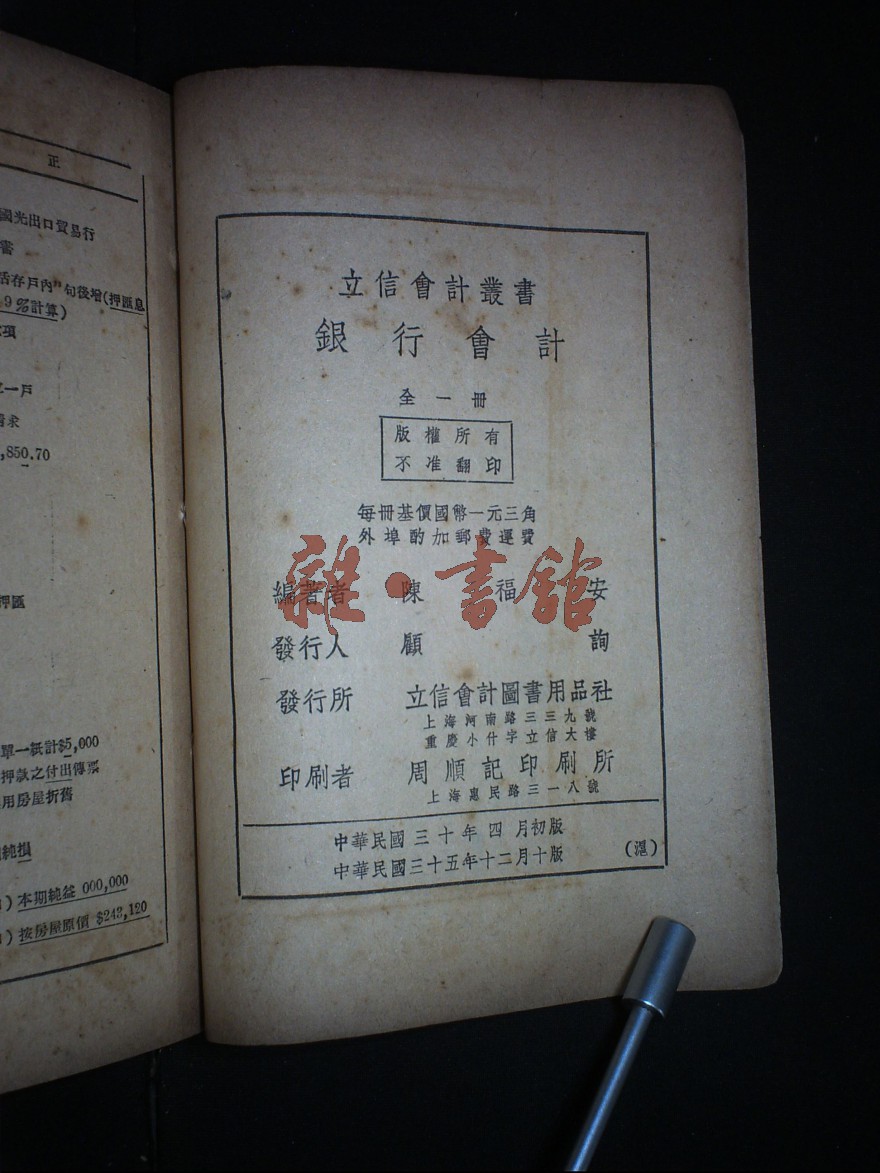 正
國光出口貿易行
活存戶內”句後增(押匯息
9%計算)
項
一戶
求
,850.70
押匯
單一紙計$5,000
押款之付出傳票
用房屋折舊
純損
)本期純益 000,000
)按房屋原價 $243,120
立信會計叢書
銀行會計
全一冊
版權所有
不准翻印
每冊基價國幣一元三角
外埠酌加郵費運費
雜·書館
編著者 陳福安
發行人 顧詢
發行所 立信會計圖書用品社
上海河南路三三九號
重慶小什字立信大樓
印刷者 周順記印刷所
上海惠民路三一八號
中華民國三十年四月初版
中華民國三十五年十二月十版
(滬)